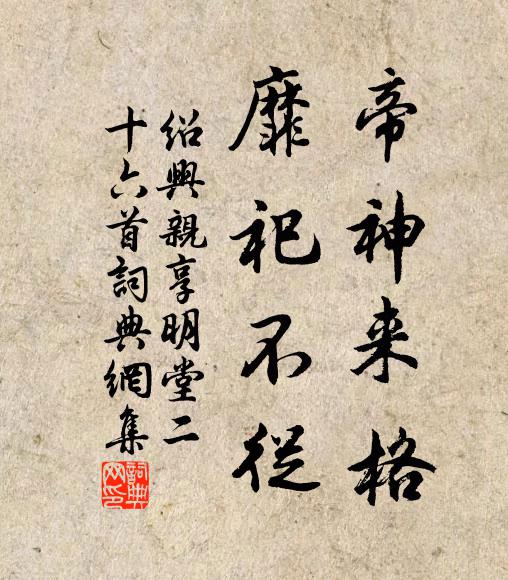 帝神来格
靡祀不從
紹興親享明堂二
十六首詞典網集
詞典网印